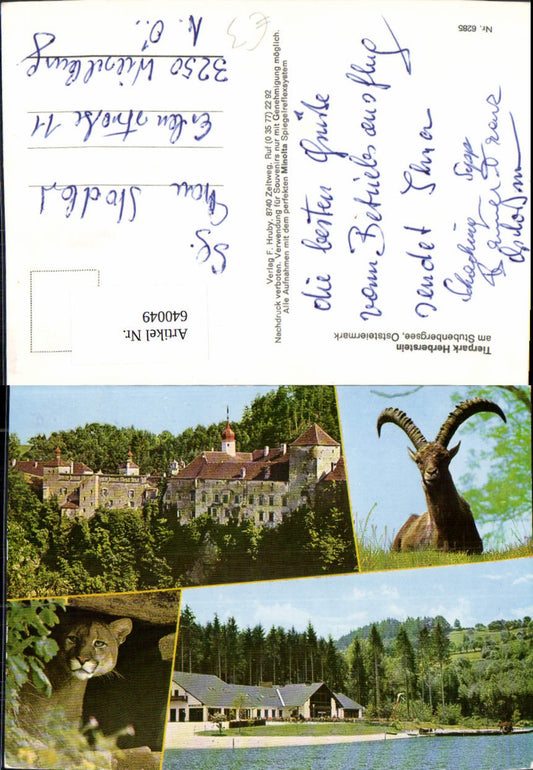 Tierpark Herberstein
am Stubenbergsee, Oststeiermark
Nr. 6285
die besten Grüße
vom Betriebsausflug
sendet Ihnen
Verlag F. Hruby, 8740 Zeltweg, Ruf (0 35 77) 22 92
Nachdruck verboten. Verwendung für Souvenirs nur mit Genehmigung möglich.
Alle Aufnahmen mit dem perfekten Minolta Spiegelreflexsystem
Artikel Nr.
640049
Frau
11
3250 Wieselburg
N.Ö.
€3